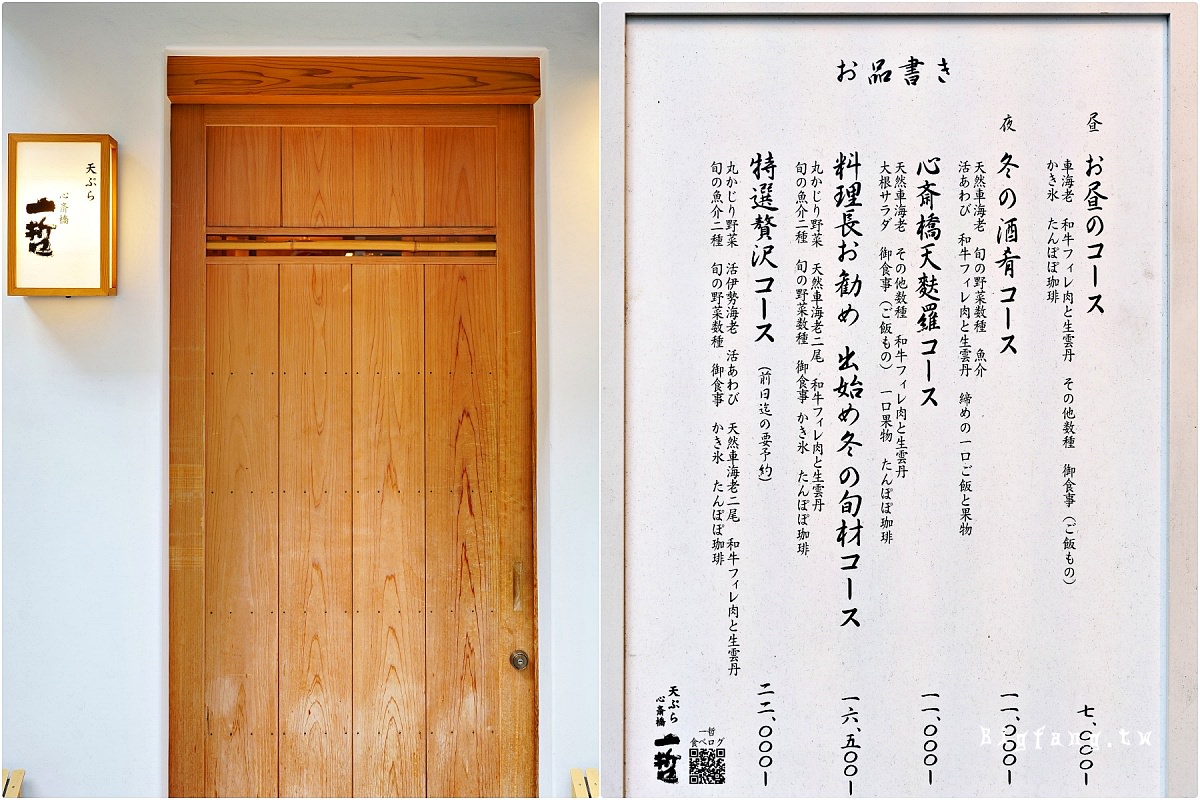 天ぷら
心斎橋
一哲
お品書き
昼
お昼のコース
車海老 和牛フィレ肉と生雲丹 その他数種 御食事(ご飯もの)
かき氷 たんぽぽ珈琲
七、〇〇〇ー
夜
冬の酒肴コース
天然車海老 旬の野菜数種 魚介
活あわび 和牛フィレ肉と生雲丹 締めの一口ご飯と果物
一一、〇〇〇ー
心斎橋天麩羅コース
天然車海老 その他数種 和牛フィレ肉と生雲丹
大根サラダ 御食事(ご飯もの) 一口果物 たんぽぽ珈琲
一一、〇〇〇ー
料理長お勧め 出始め冬の旬材コース
丸かじり野菜 天然車海老二尾 和牛フィレ肉と生雲丹
旬の魚介二種 旬の野菜数種 御食事 かき氷 たんぽぽ珈琲
一六、五〇〇ー
特選贅沢コース (前日迄の要予約)
丸かじり野菜 活伊勢海老 活あわび 天然車海老二尾 和牛フィレ肉と生雲丹
旬の魚介二種 旬の野菜数種 御食事 かき氷 たんぽぽ珈琲
二二、〇〇〇ー
天ぷら
心斎橋
一哲
一哲
食べログ
Bigfang.tw